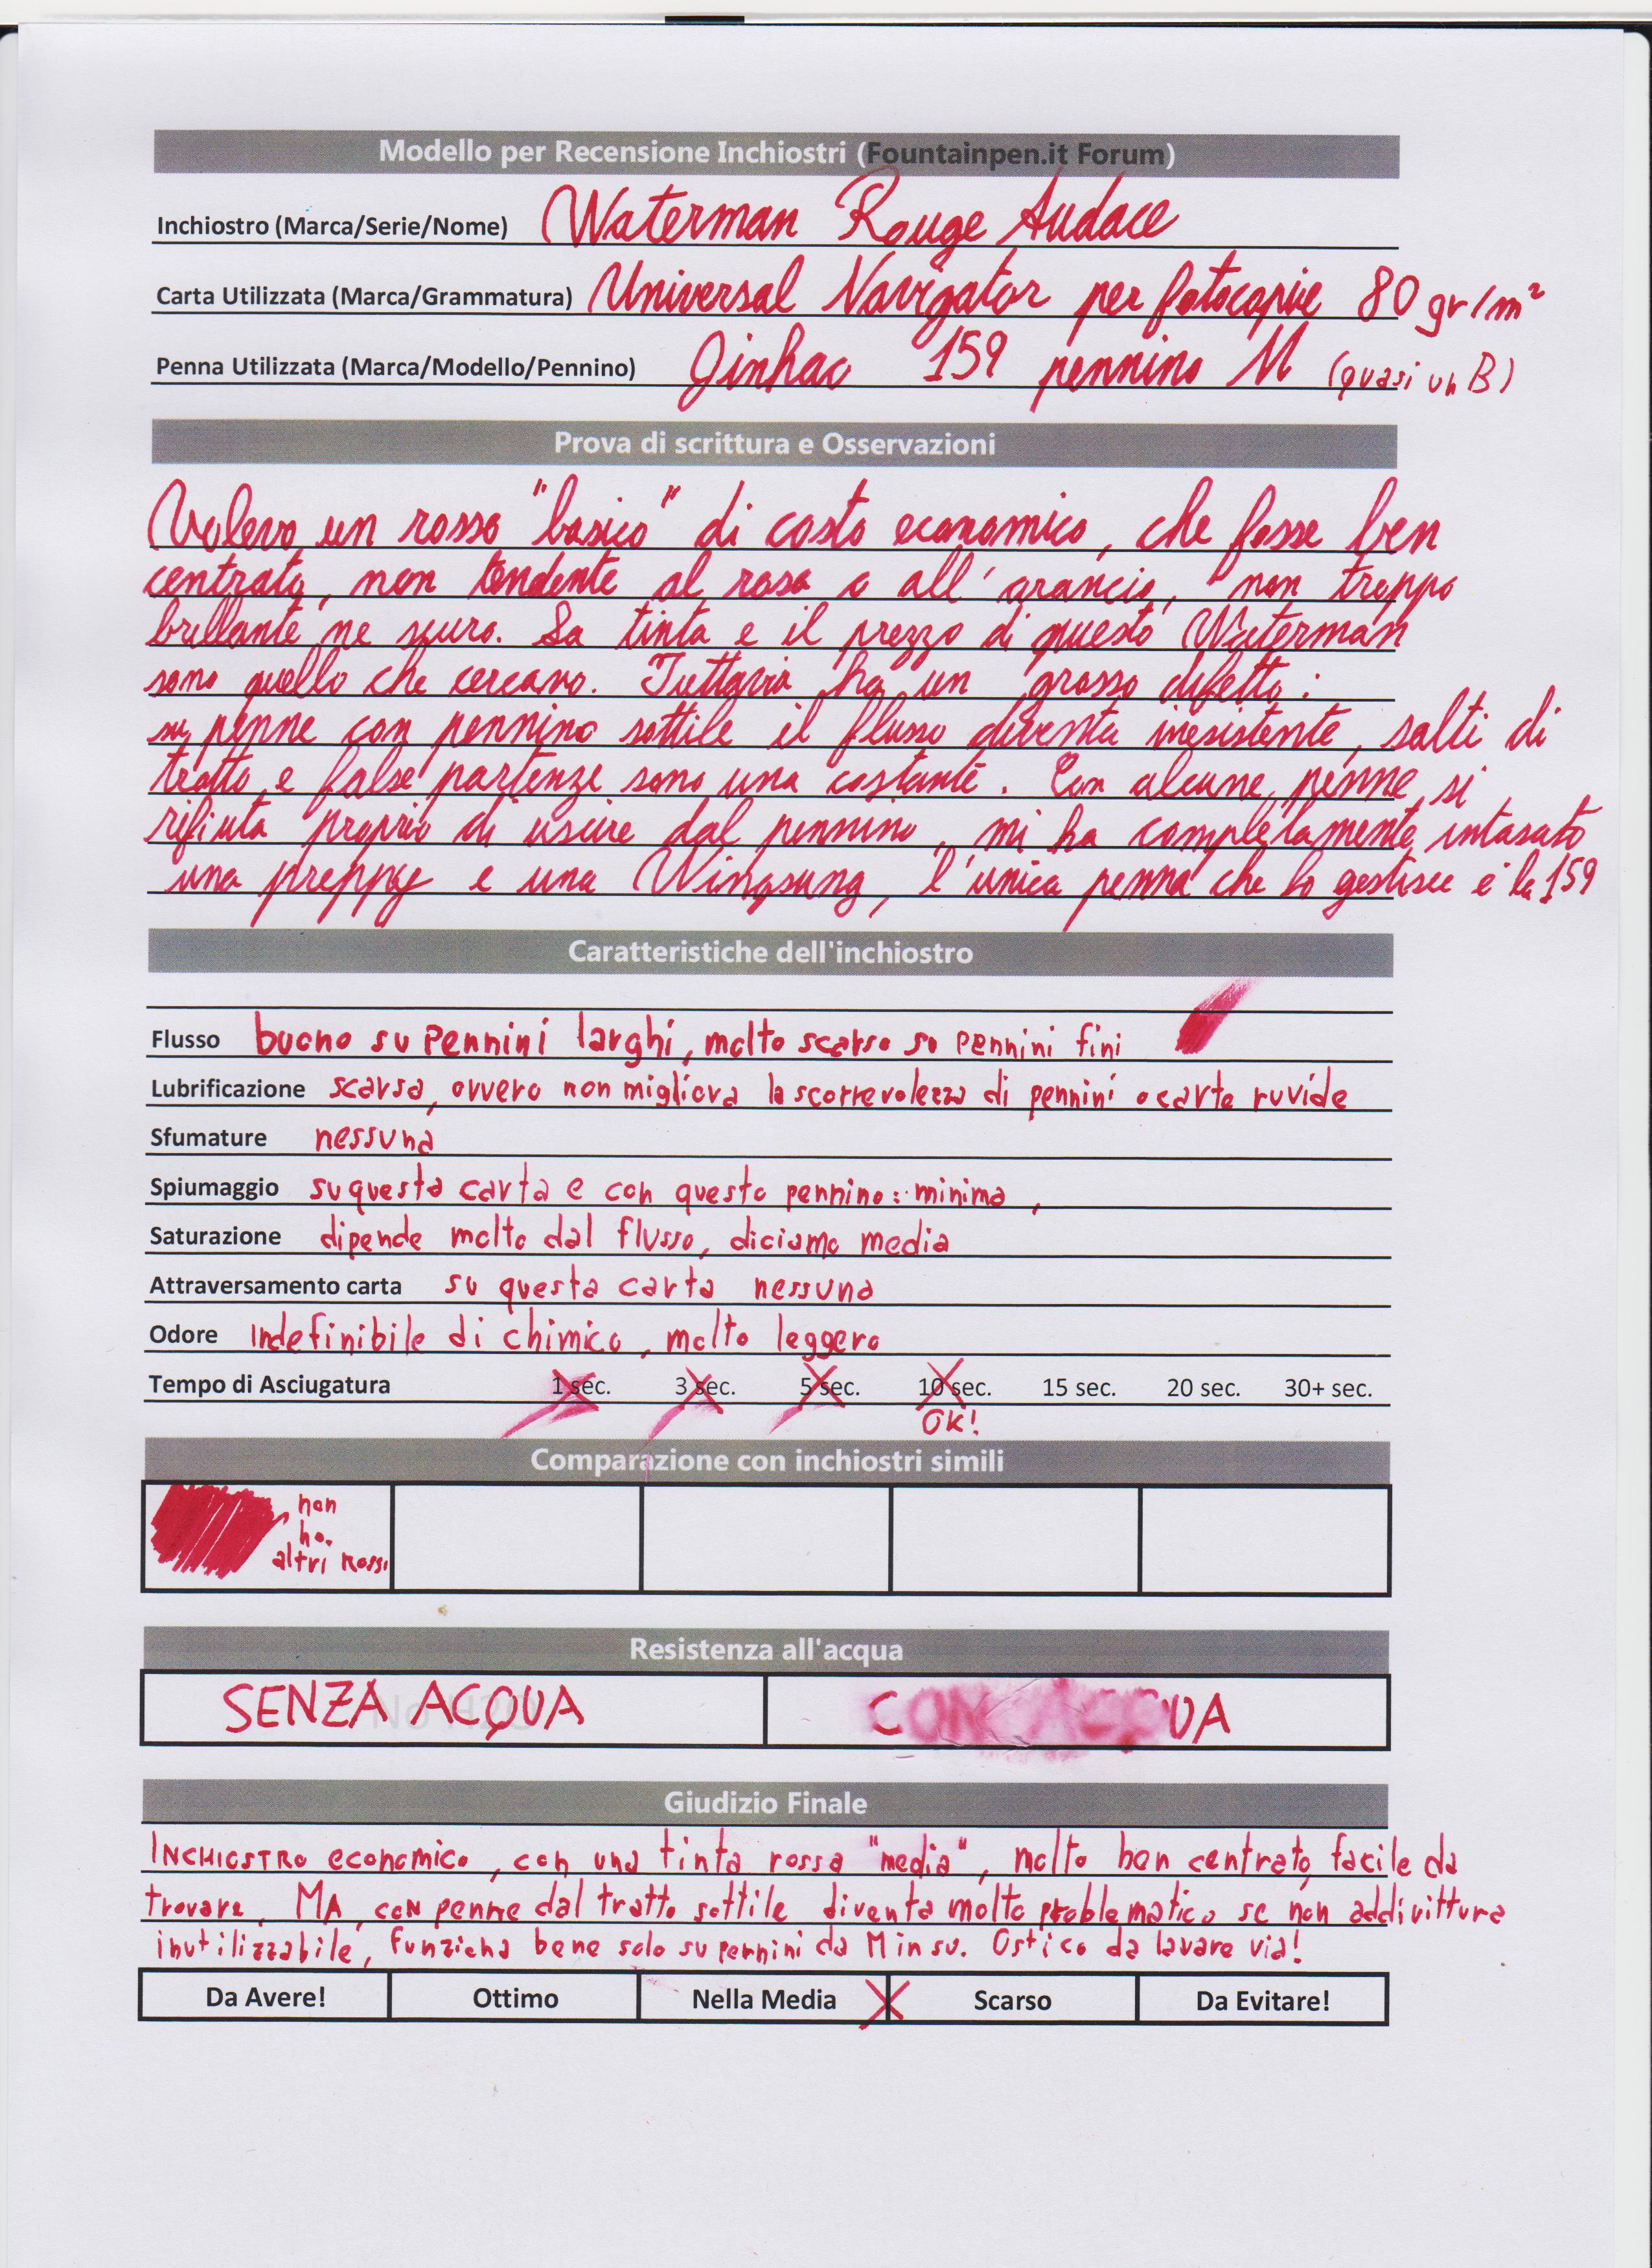 Modello per Recensione Inchiostri (Fountainpen.it Forum)
Inchiostro (Marca/Serie/Nome) Waterman Rouge Audace
Carta Utilizzata (Marca/Grammatura) Universal Navigator per fotocopie 80 gr/m²
Penna Utilizzata (Marca/Modello/Pennino) Jinhao 159 pennino M (quasi un B)
Prova di scrittura e Osservazioni
Volevo un rosso "basico" di costo economico, che fosse ben
centrato, non tendente al rosa o all'arancio, non troppo
brillante ne scuro. La tinta e il prezzo di questo Waterman
sono quello che cercavo. Tuttavia ha un grosso difetto:
su penne con pennino sottile il flusso diventa inesistente, salti di
tratto e false partenze sono una costante. Con alcune penne si
rifiuta proprio di uscire dal pennino, mi ha completamente intasato
una preppy e una Wingsung, l'unica penna che lo gestisce è la 159
Caratteristiche dell'inchiostro
Flusso buono su pennini larghi, molto scarso su pennini fini
Lubrificazione scarsa, ovvero non migliora la scorrevolezza di pennini o carte ruvide
Sfumature nessuna
Spiumaggio su questa carta e con questo pennino: minima
Saturazione dipende molto dal flusso, diciamo media
Attraversamento carta su questa carta nessuna
Odore Indefinibile di chimico, molto leggero
Tempo di Asciugatura 1 sec. 3 sec. 5 sec. 10 sec. 15 sec. 20 sec. 30+ sec.
OK!
Comparazione con inchiostri simili
non
ho
altri rossi
Resistenza all'acqua
SENZA ACQUA CON ACQUA
No H2O
Giudizio Finale
INCHIOSTRO economico, con una tinta rossa "media", molto ben centrato, facile da
trovare. MA, con penne dal tratto sottile diventa molto problematico se non addirittura
inutilizzabile, funziona bene solo su pennini da M in su. Ostico da lavare via!
Da Avere! Ottimo Nella Media Scarso Da Evitare!